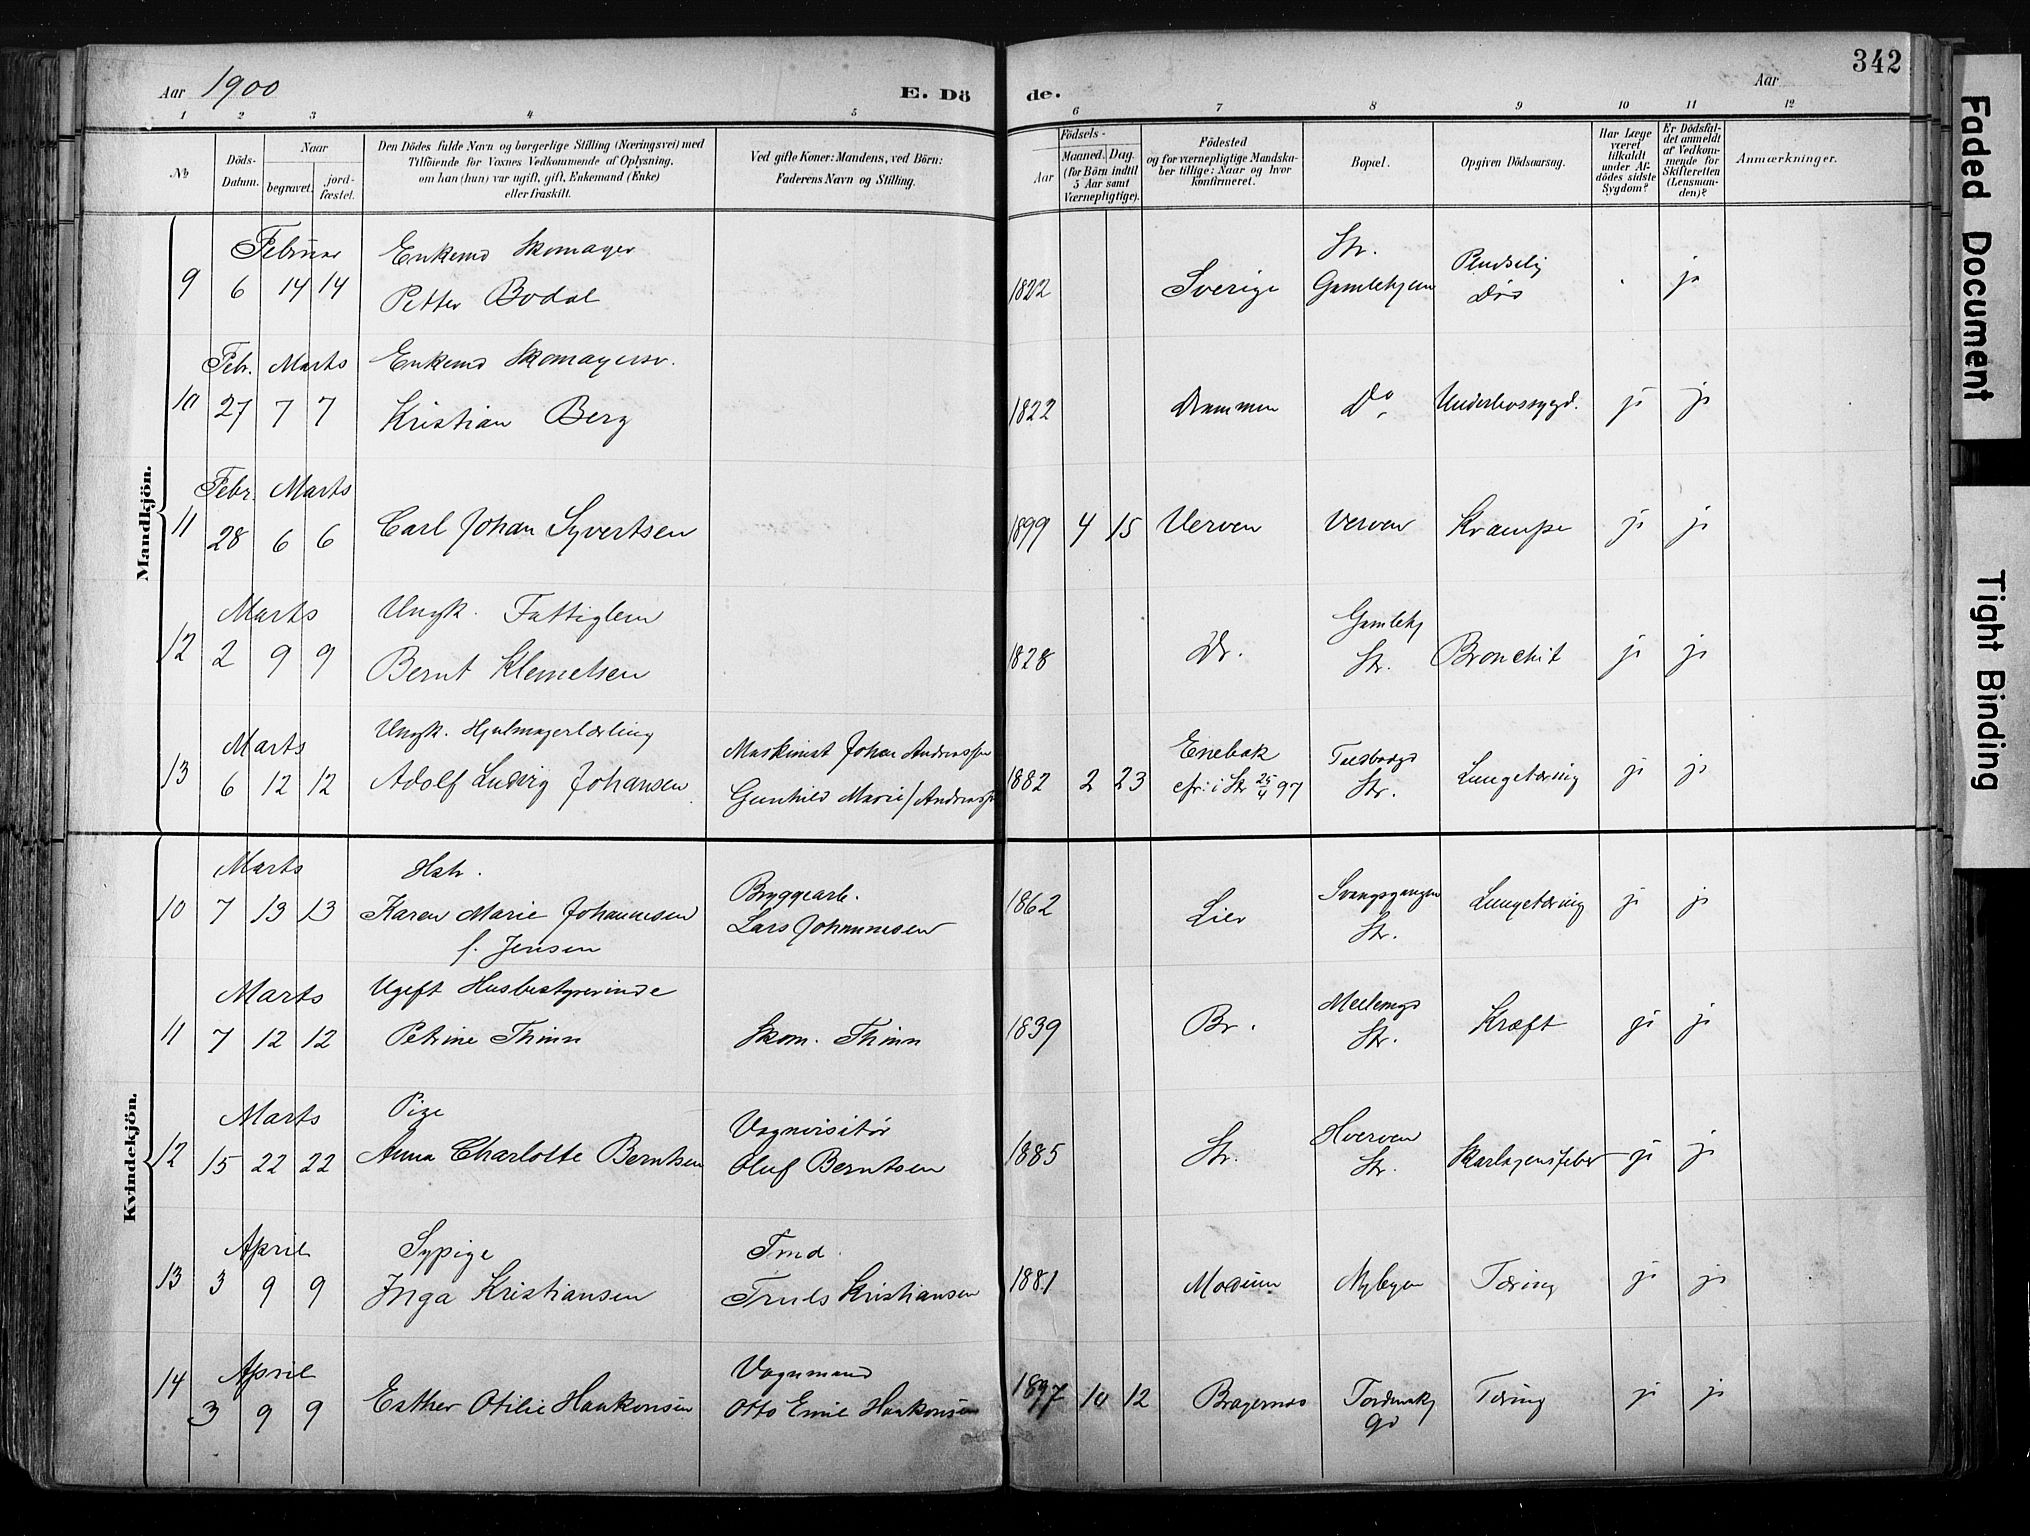 342
Aar 1900
E. Dö
de.
Aar
1 2 3 4 5 6 7 8 9 10 11 12
No
Döds-Datum.
Naar
begravet.
jord-fæstet.
Den Dödes fulde Navn og borgerlige Stilling (Næringsvei) med
Tilföiende for Voxnes Vedkommende af Oplysning,
om han (hun) var ugift, gift, Enkemand (Enke)
eller fraskilt.
Ved gifte Koner: Mandens, ved Börn:
Faderens Navn og Stilling.
Födsels-
Aar
Maaned. Dag.
(for Börn indtil
5 Aar samt
Værnepligtige).
Födested
og for værnepligtige Mandska-
ber tillige: Naar og hvor
konfirmeret.
Bopæl.
Opgiven Dödsaarsag.
Har Læge
været
tilkaldt
under Af-
dödes sidste
Sygdom?
Er Dödsfal-
det anmeldt
af Vedkom-
mende for
Skifteretten
(Lensman-
den)?
Anmærkninger.
Mandkjön.
Februar Enkemd Skomager Str.
9 6 14 14 Petter Bodal 1822 Sverige Gamlehjem Pludselig Död ja
Febr. Marts Enkemd Skomagersv.
10 27 7 7 Kristian Berg 1822 Drammen Do Underlivssygd. ja ja
Febr. Marts
11 28 6 6 Carl Johan Syvertsen 1899 4 15 Verven Verven Krampe ja ja
Marts Ungk. Fattiglem Gamlehj
12 2 9 9 Bernt Klemetsen 1828 Dr. Str. Bronchit ja ja
Marts Ungk. Hjulmagerlærling Maskinist Johan Andreassen Enebak
13 6 12 12 Adolf Ludvig Johansen Gunhild Marie Andreassen 1882 2 23 cfr: i Str 25/4 97 Str. Lungetæring ja ja
Kvindekjön.
Marts Hstr. Bryggearb.
10 7 13 13 Karen Marie Johannesen Lars Johannesen 1862 Lier Svangsgangen Str. Lungetæring ja ja
f. Jensen
Marts Ugift Husbestyrerinde
11 7 12 12 Petrine Thinn Skom. Thinn 1839 Br. Str. Kræft ja ja
Marts Pige Vognvisitør Hverven
12 15 22 22 Anna Charlotte Berntsen Oluf Berntsen 1885 Str. Str. Skarlagensfeber ja ja
April Sypige Tmd.
13 3 9 9 Inga Kristiansen Truls Kristiansen 1881 Modum Nybyen Tæring ja ja
April Vognmand
14 3 9 9 Esther Otilie Haakonsen Otto Emil Haakonsen 1897 10 12 Bragernes Tordenskj gd Tæring ja ja
Faded Document
Tight Binding